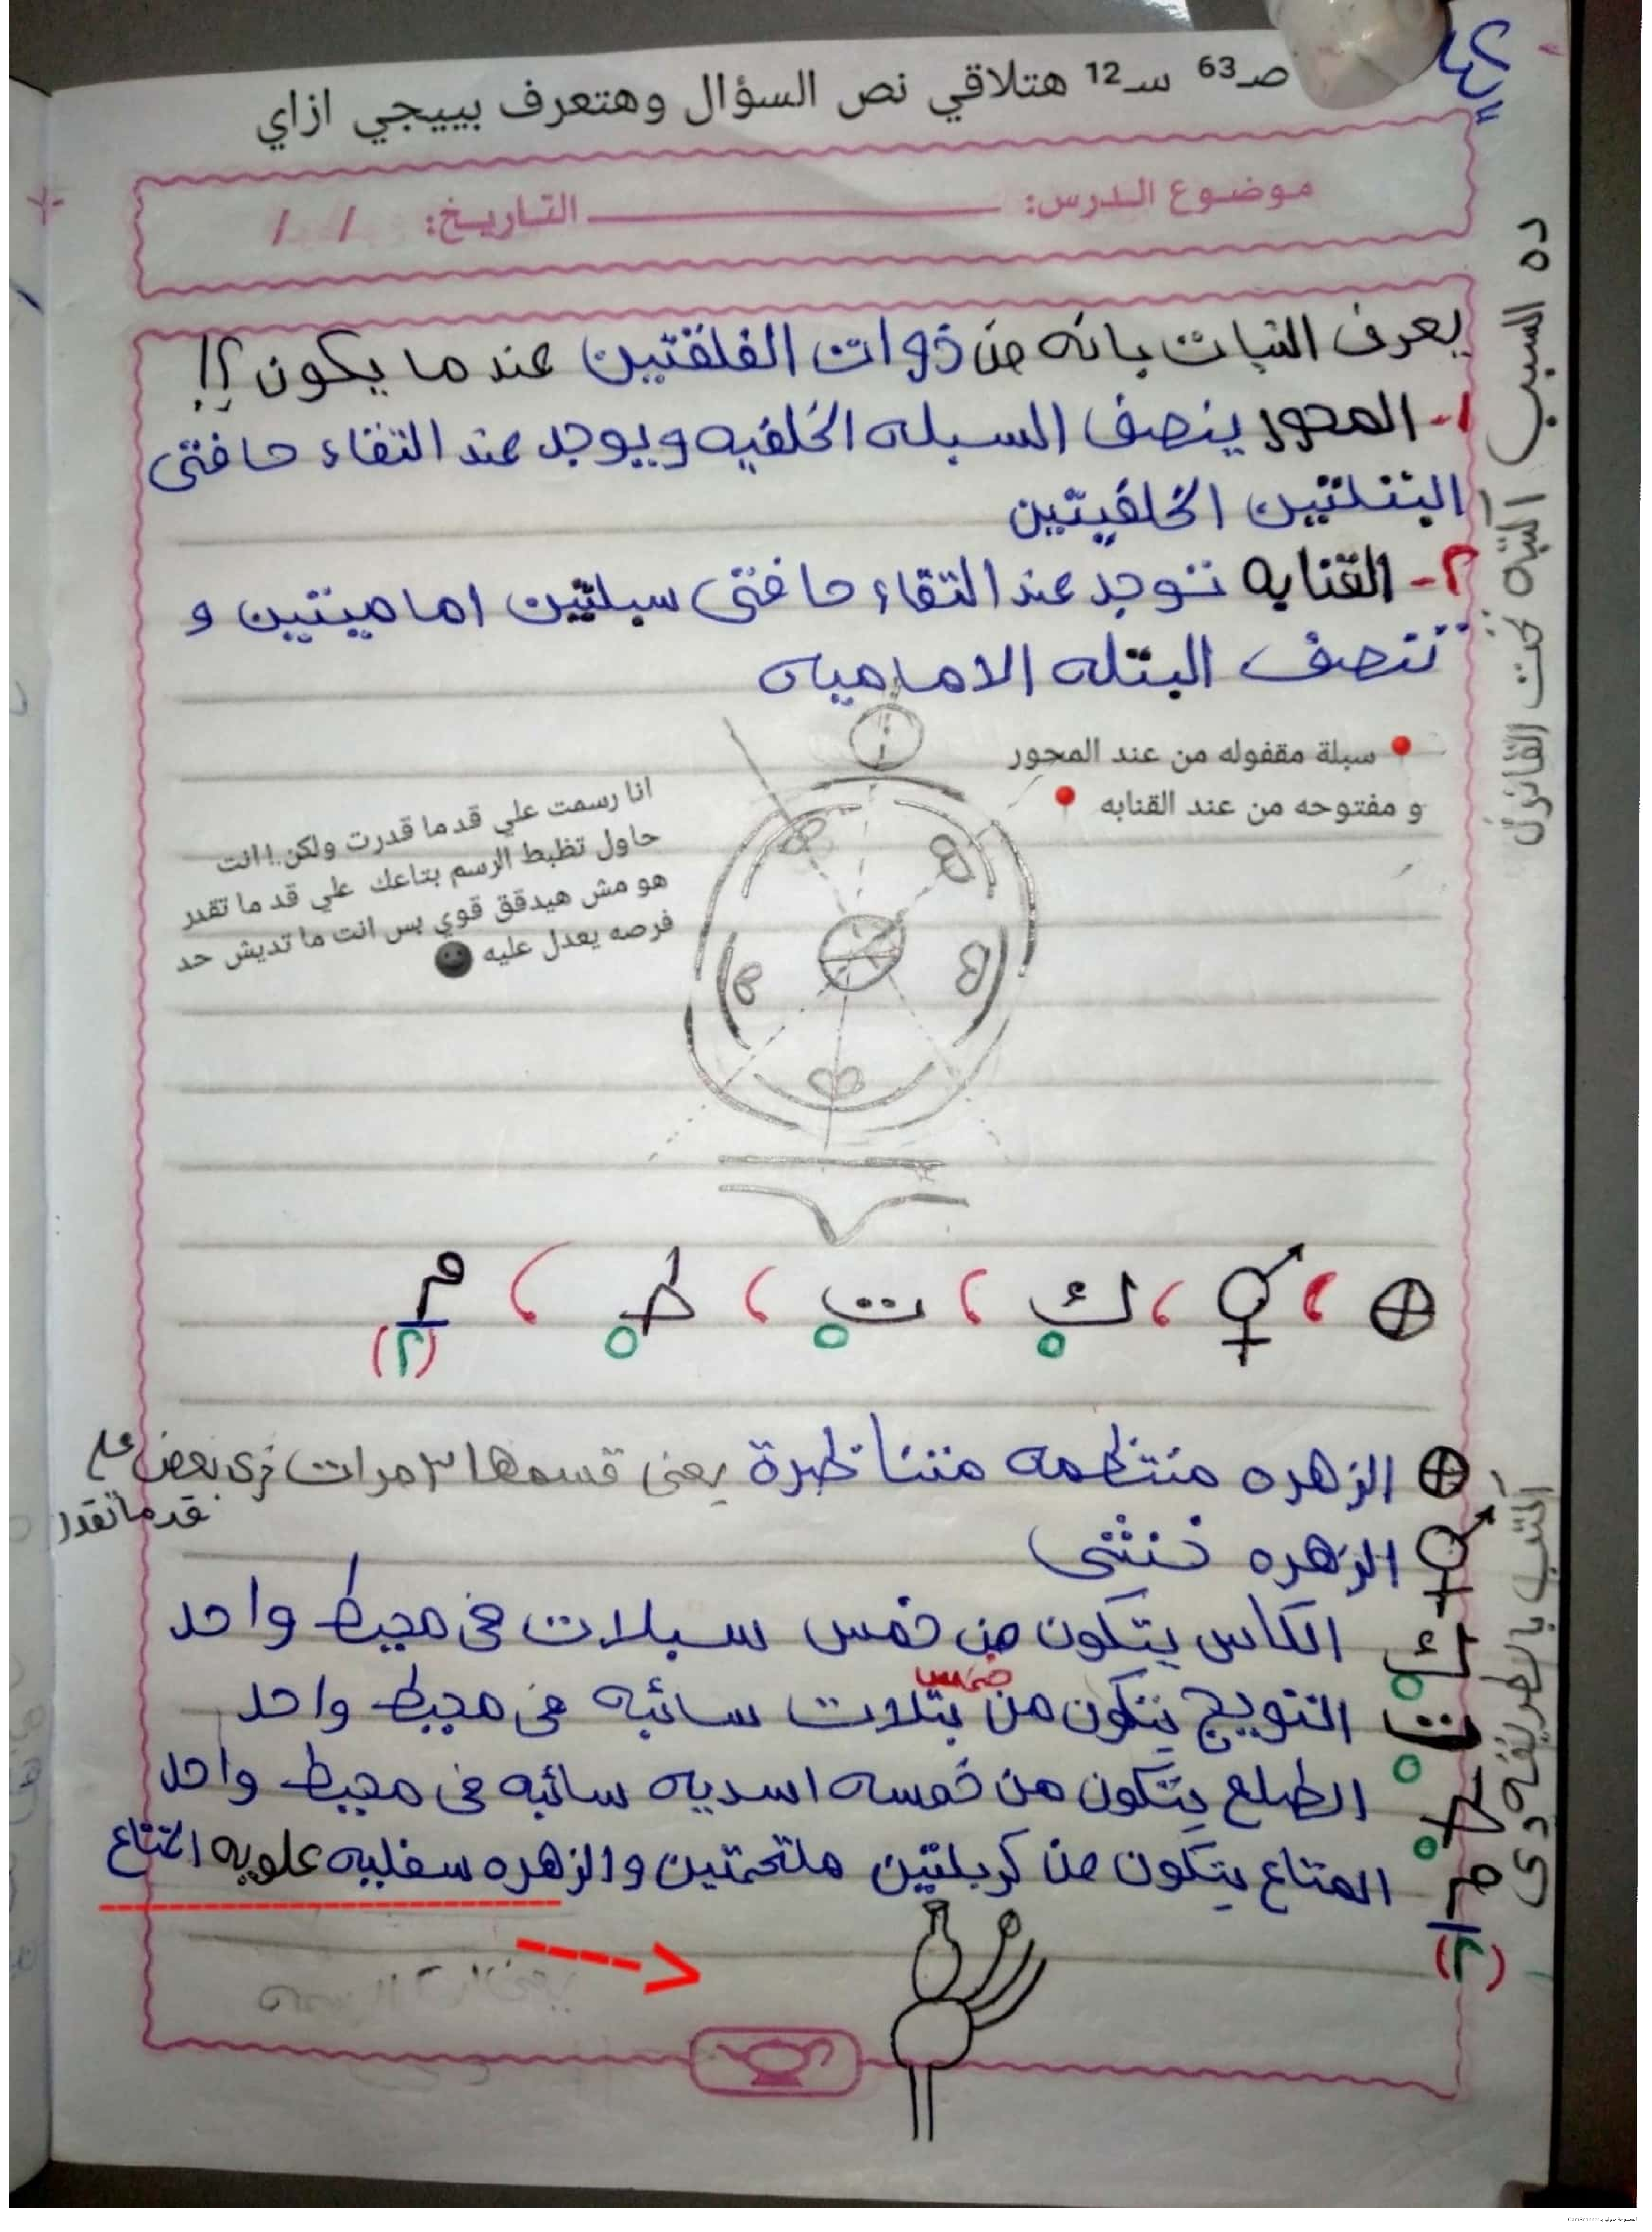 صـ63 سـ12 هتلاقي نص السؤال وهتعرف بييجي ازاي
موضوع الدرس: التاريخ: / /
يعرف النبات بانه من ذوات الفلقتين عندما يكون ؟!
١- المحور ينصف السبله الخلفيه ويوجد عند التقاء حافتى
البتلتين الخلفيتين
٢- القنابه توجد عند التقاء حافتى سبلتين اماميتين و
تنصف البتله الاماميه
سبلة مقفوله من عند المحور
و مفتوحه من عند القنابه
انا رسمت علي قد ما قدرت ولكن.! انت
حاول تظبط الرسم بتاعك علي قد ما تقدر
هو مش هيدقق قوي بس انت ما تديش حد
فرصه يعدل عليه
⊕ ، ⚥ ، ك٥ ، ت٥ ، ط٥ ، م(٢)
⊕ الزهره منتظمه متناظرة يعنى قسمها ٣ مرات زى بعض على
قد ما تقدر
الزهره خنثى
ك٥ الكاس يتكون من خمس سبلات فى محيط واحد
ت٥ التويج يتكون من خمس بتلات سائبه فى محيط واحد
ط٥ الطلع يتكون من خمسه اسديه سائبه فى محيط واحد
م(٢) المتاع يتكون من كربلتين ملتحمتين والزهره سفليه علويه المتاع
ده السبب اكتبه تحت القانون
اكتب بالطريقه دى